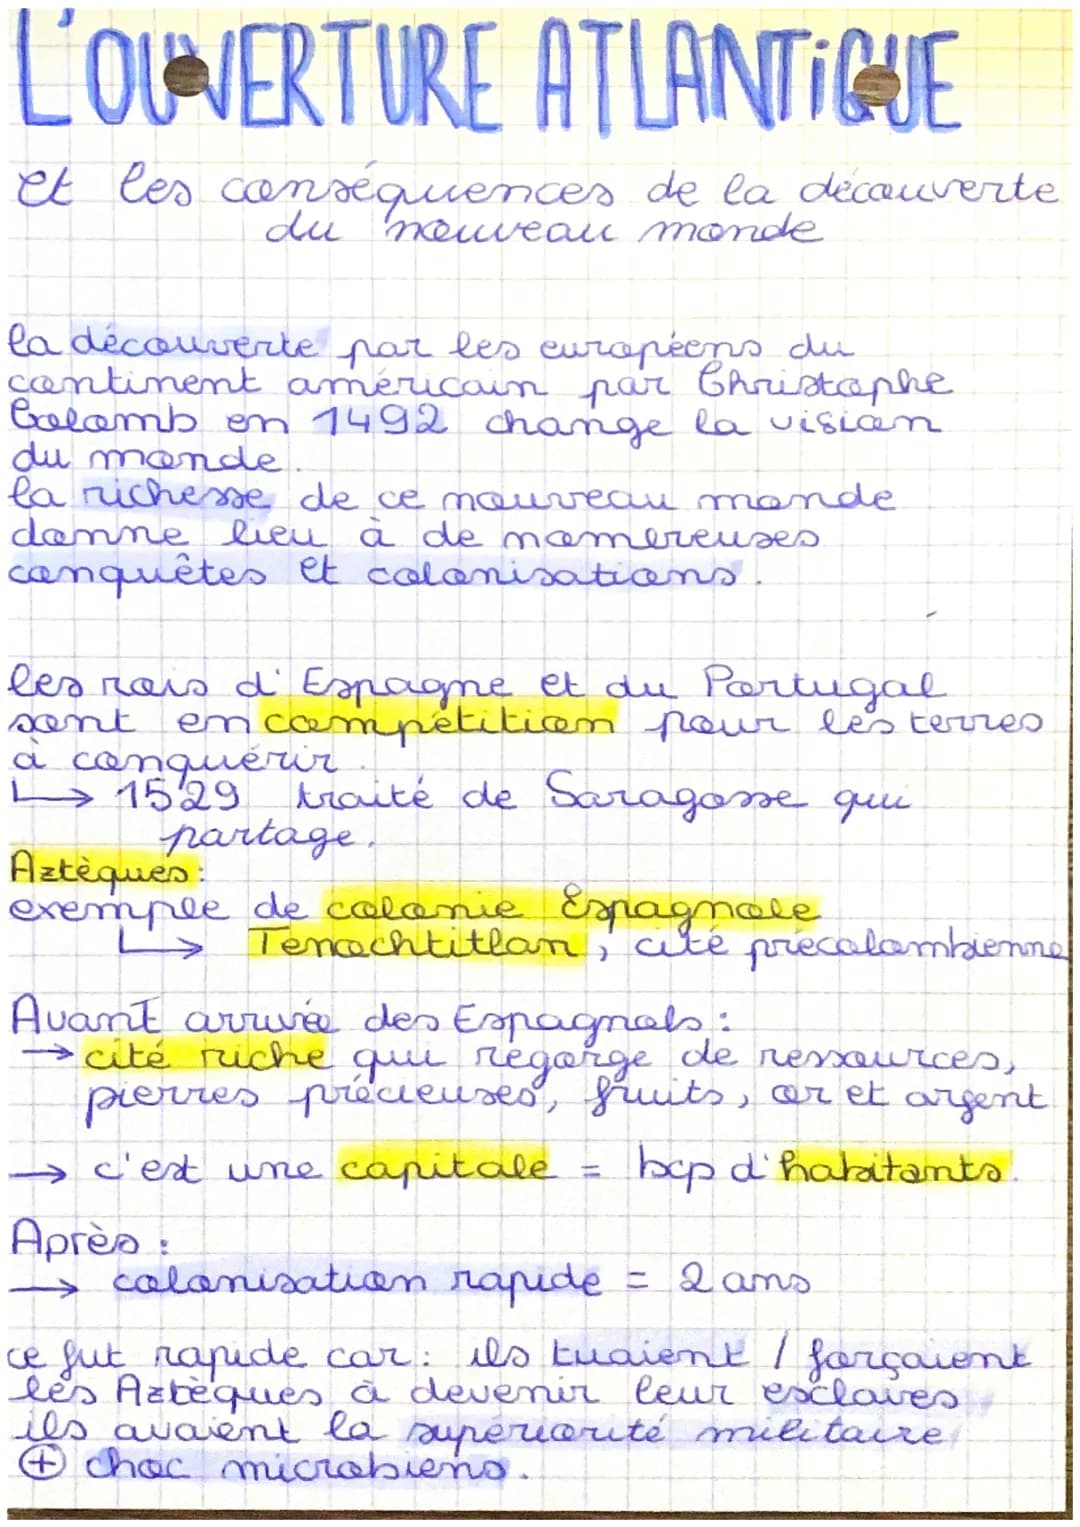 L'OUVERTURE ATLANTiQUE
et les conséquences de la découverte
du nouveau monde
la découverte par les européens du
continent américain par Christophe
Colomb en 1492 change la vision
du monde.
la richesse de ce nouveau monde
donne lieu à de nomereuses
conquêtes et colonisations.
les rois d'Espagne et du Portugal
sont en compétition pour les terres
à conquérir.
↳ 1529 traité de Saragosse qui
partage.
Aztèques:
exemple de colonie Espagnole
↳ Tenochtitlan, cité précolombienne
Avant arrivée des Espagnols:
→ cité riche qui régorge de ressources,
pierres précieuses, fruits, or et argent
→ c'est une capitale = bcp d'habitants.
Après :
→ colonisation rapide = 2 ans
ce fut rapide car: ils tuaient / forçaient
les Aztèques à devenir leur esclaves
ils avaient la supériorité militaire
⊕ choc microbiens.